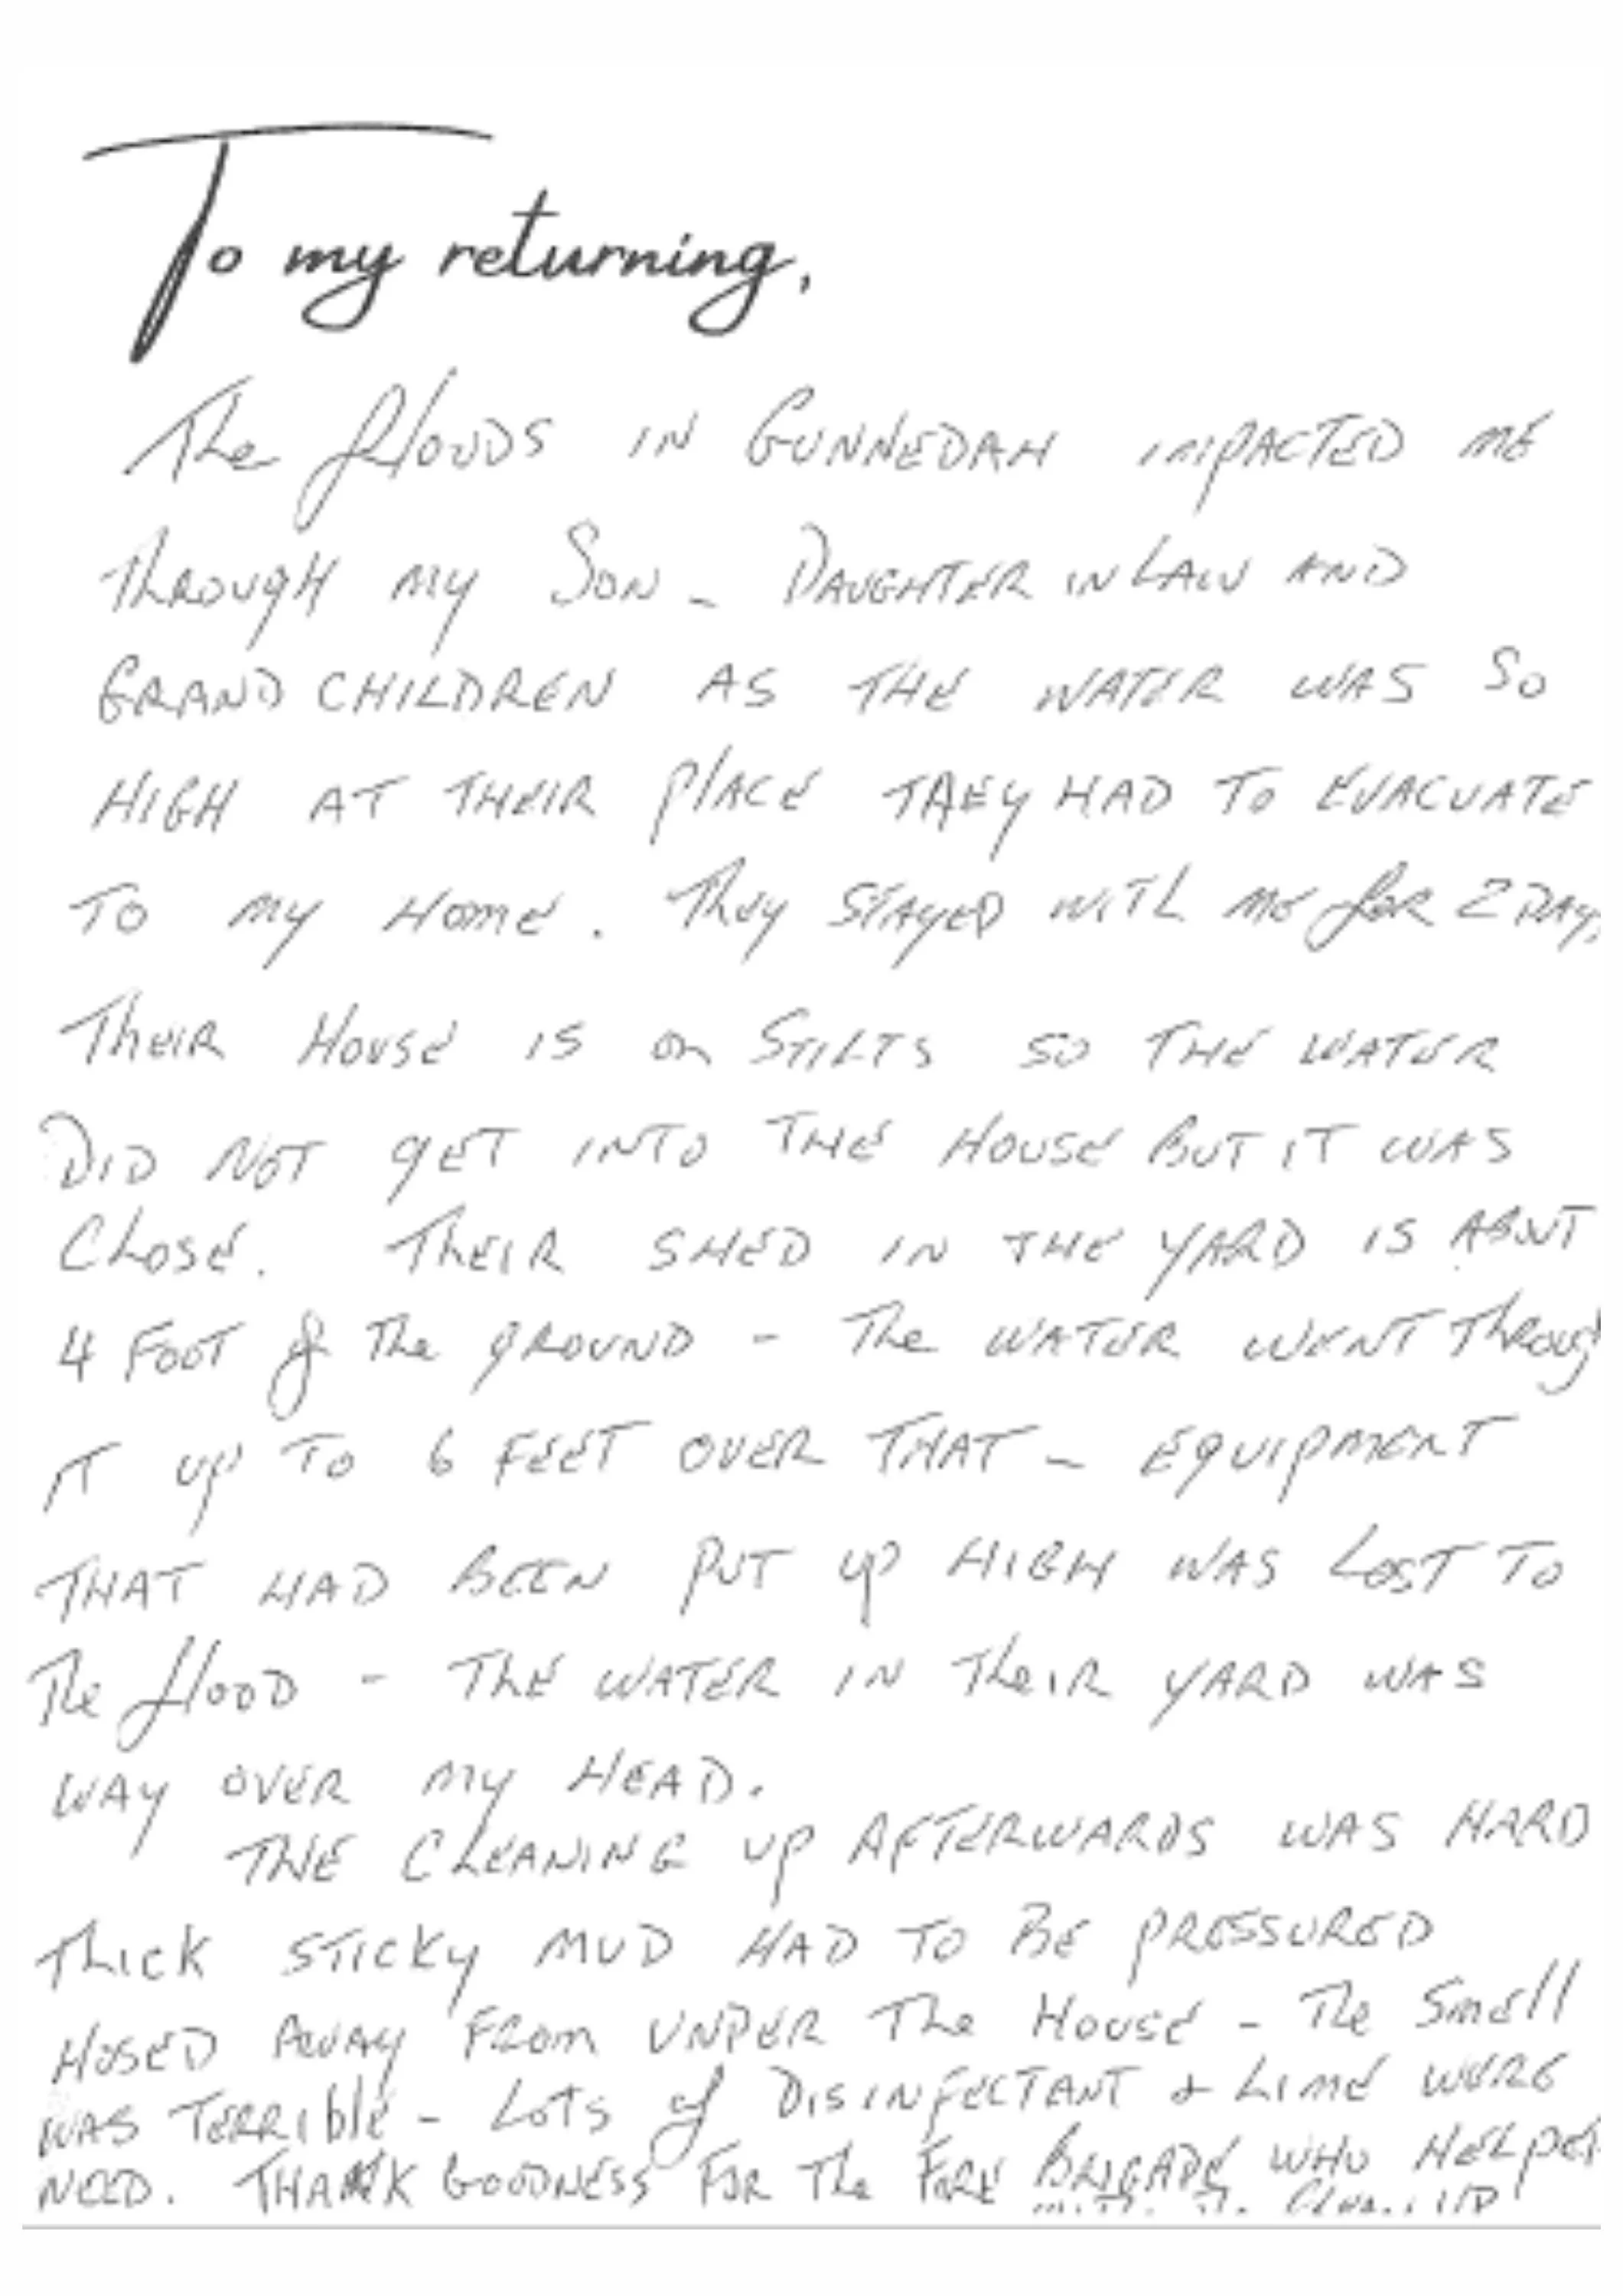 To my returning,
The floods IN GUNNEDAH IMPACTED ME
THROUGH MY SON - DAUGHTER IN LAW AND
GRAND CHILDREN AS THE WATER WAS SO
HIGH AT THEIR PLACE THEY HAD TO EVACUATE
TO MY HOME. They STAYED WITH ME for 2 DAYS
THEIR HOUSE IS ON STILTS SO THE WATER
DID NOT GET INTO THE HOUSE BUT IT WAS
CLOSE. THEIR SHED IN THE YARD IS ABOUT
4 FOOT of The GROUND - The WATER WENT Through
IT UP TO 6 FEET OVER THAT - EQUIPMENT
THAT HAD BEEN PUT UP HIGH WAS LOST TO
The flood - THE WATER IN THEIR YARD WAS
WAY OVER MY HEAD.
THE CLEANING UP AFTERWARDS WAS HARD
THICK STICKY MUD HAD TO BE PRESSURED
HOSED AWAY FROM UNDER The HOUSE - The Smell
WAS TERRIble - LOTS of DISINFECTANT & LIME WERE
NEED. THANK GOODNESS FOR The FIRE BRIGADE WHO HELPED